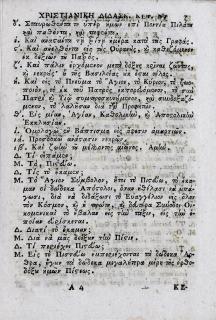 ΧΡΙΣΤΙΑΝΙΚΗ ΔΙΔΑΣΚ. ΚΕΦ.
δ'. Σταυρωθέντα τε ὑπὲρ ἡμῶν ἐπὶ Ποντίου Πιλάτου
καὶ παθόντα, καὶ ταφέντα.
ε'. Καὶ ἀναστάντα τῇ τρίτῃ ἡμέρᾳ κατὰ τὰς Γραφάς.
ς'. Καὶ ἀνελθόντα εἰς τοὺς Οὐρανοὺς, καὶ καθεζόμενον
ἐκ δεξιῶν τοῦ Πατρός.
ζ'. Καὶ πάλιν ἐρχόμενον μετὰ δόξης κρῖναι ζῶντας,
καὶ νεκροὺς οὗ τῆς Βασιλείας οὐκ ἔσται τέλος.
η'. Καὶ εἰς τὸ Πνεῦμα τὸ Ἅγιον, τὸ Κύριον, τὸ ζωο-
ποιὸν, τὸ ἐκ τοῦ Πατρὸς ἐκπορευόμενον, τὸ σὺν
Πατρὶ καὶ Υἱῷ συμπροσκυνούμενον, καὶ συνδοξαζό-
μενον, τὸ λαλῆσαν διὰ τῶν Προφητῶν.
θ'. Εἰς μίαν, Ἁγίαν, Καθολικὴν, καὶ Ἀποστολικὴν
Ἐκκλησίαν.
ι'. Ὁμολογῶ ἓν Βάπτισμα εἰς ἄφεσιν ἁμαρτιῶν.
ια'. Προσδοκῶ ἀνάστασιν νεκρῶν.
ιβ'. Καὶ ζωὴν τοῦ μέλλοντος αἰῶνος. Ἀμήν.
Δ. Τί εἶπαμεν;
Μ. Τὸ, Πιστεύω.
Δ. Τίς τὸ ἔκαμεν;
Μ. Τὸ Ἅγιον Σύμβολον, ἤτοι τὸ Πιστεύω, τὸ ἔκα-
μαν οἱ δώδεκα Ἀπόστολοι, ὅταν ἐθέλησαν νὰ
, διὰ νὰ διδάξουν τὸ Εὐαγγέλιον εἰς ὅλον
τὸν Κόσμον, καὶ ἡ πρώτη, καὶ δευτέρα Σύνοδοι Οἰ-
κουμενικαὶ τὸ ἔβαλαν εἰς τὴν τάξιν, εἰς τὴν
ὁποίαν εὑρίσκεται.
Δ. Διατί τὸ ἔκαμαν;
Μ. Διὰ νὰ μᾶς δείξουν τὴν Πίστιν.
Δ. Τί περιέχει τὸ Πιστεύω;
Μ. Εἰς τὸ Πιστεύω ἐμπεριέχονται τὰ δώδεκα Ἄρ-
θρα, ἤγουν τὰ δώδεκα μεγαλύτερα μέρη τῆς ὀρθο-
δόξου ἡμῶν Πίστεως.
Α 4 ΚΕ-